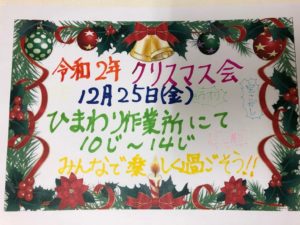 令和2年 クリスマス会
12月25日(金)
ひまわり作業所にて
10じ〜14じ
みんなで楽しく過ごそう!!